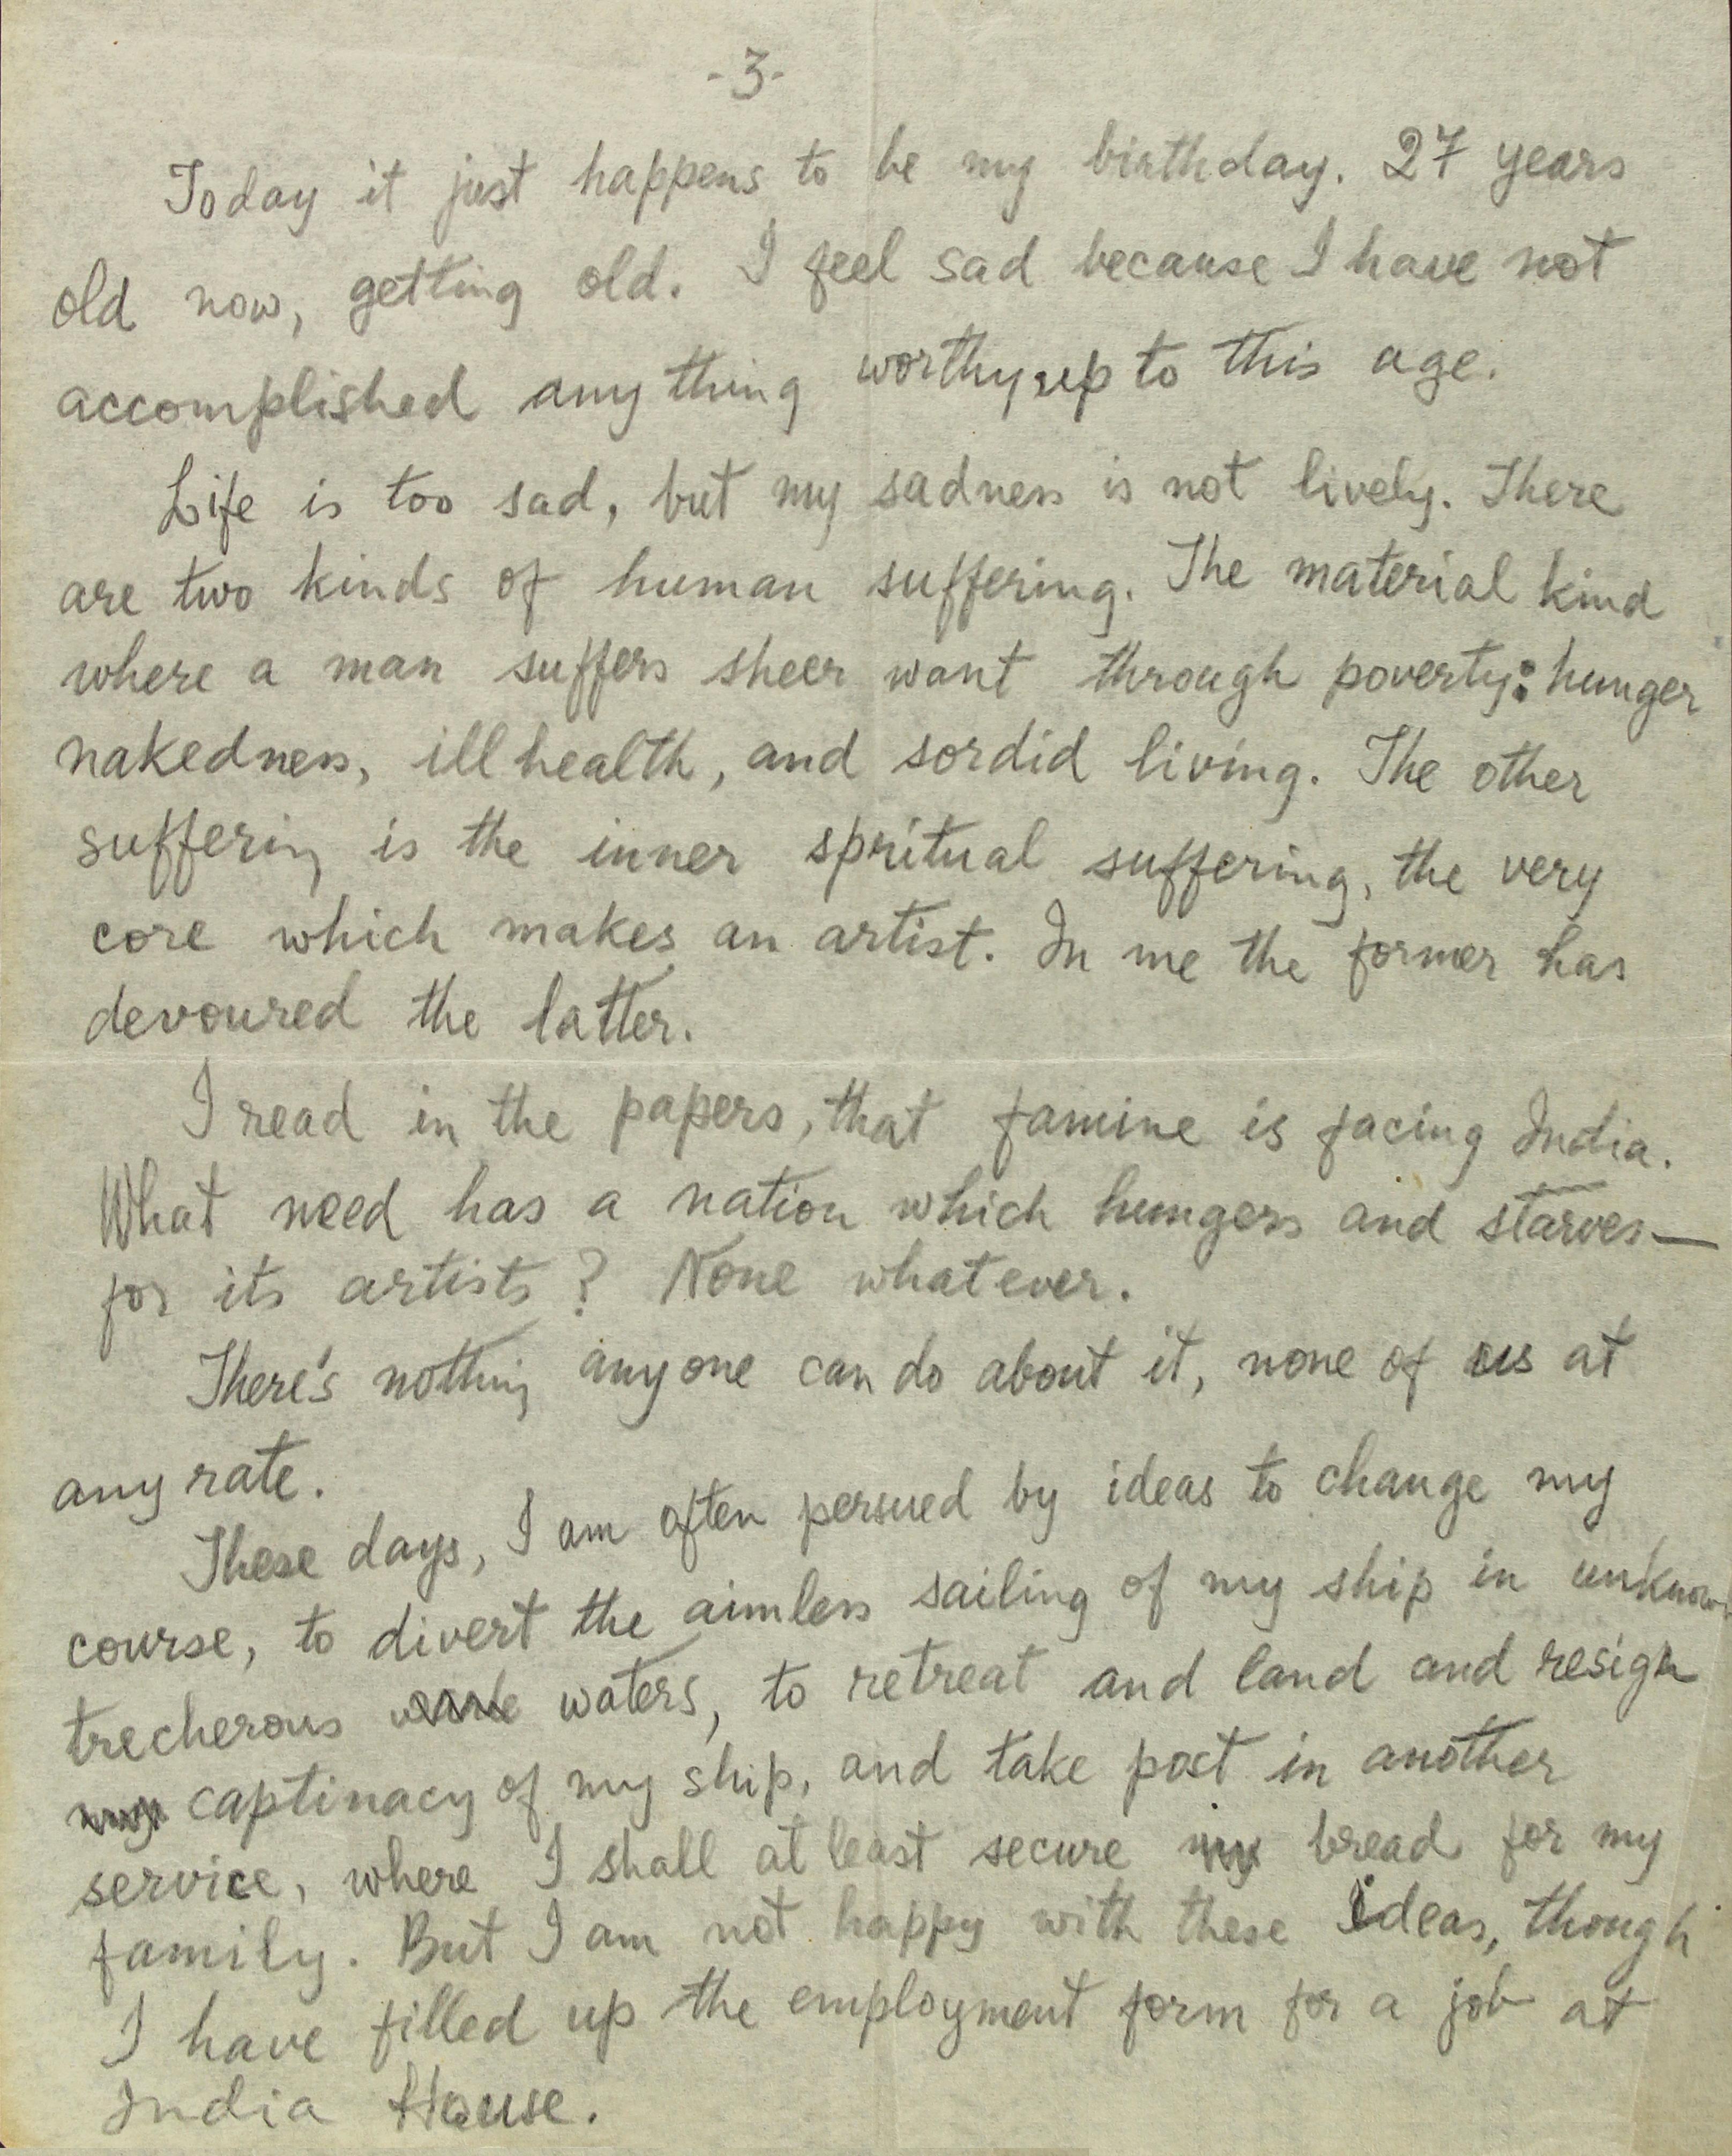 -3-
Today it just happens to be my birthday. 27 years
old now, getting old. I feel sad because I have not
accomplished any thing worthy up to this age.
Life is too sad, but my sadness is not lively. There
are two kinds of human suffering. The material kind
where a man suffers sheer want through poverty: hunger
nakedness, ill health, and sordid living. The other
suffering is the inner spritual suffering, the very
core which makes an artist. In me the former has
devoured the latter.
I read in the papers, that famine is facing India.
What need has a nation which hungers and starves—
for its artists? None whatever.
There's nothing anyone can do about it, none of us at
any rate.
These days, I am often persued by ideas to change my
course, to divert the aimless sailing of my ship in unknown
trecherous waters, to retreat and land and resign
my captinacy of my ship, and take post in another
service, where I shall at least secure my bread for my
family. But I am not happy with these ideas, though
I have filled up the employment form for a job at
India House.